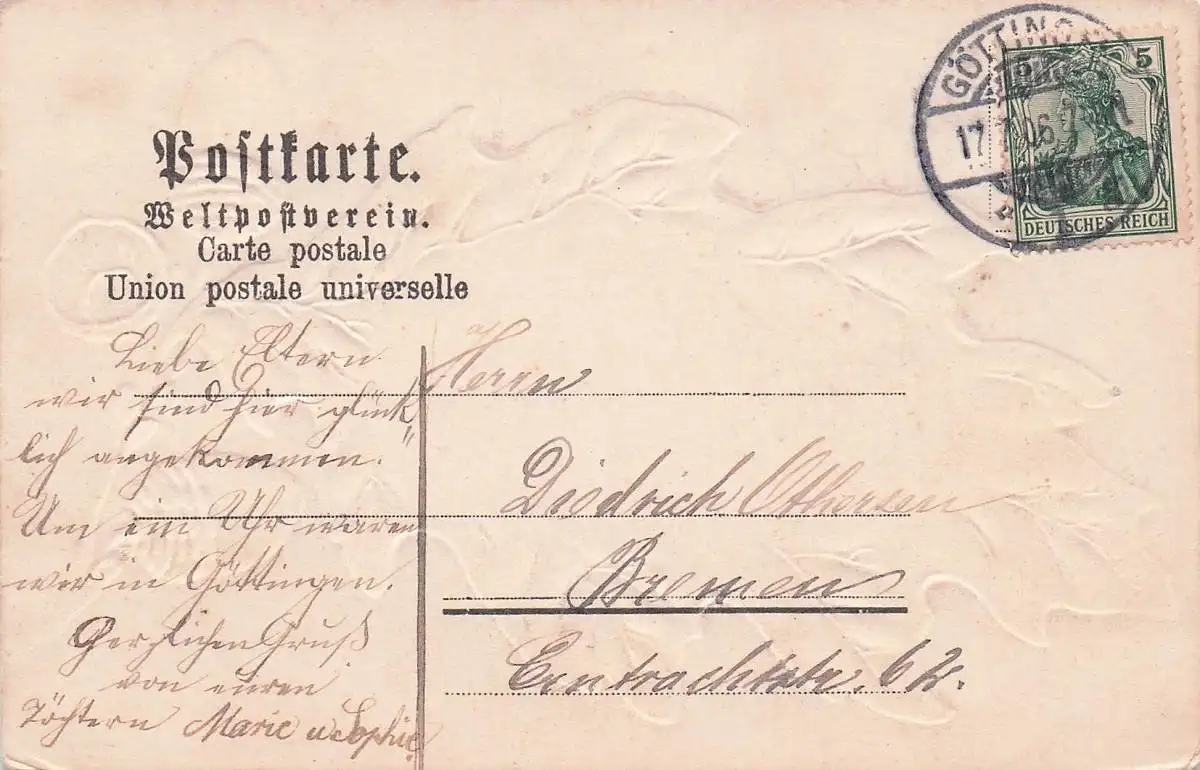 Postkarte.
Weltpostverein.
Carte postale
Union postale universelle
Liebe Eltern
wir sind hier glück
lich angekommen.
Um ein Uhr waren
wir in Göttingen.
Herzlichen Gruß
von euren
Töchtern Marie u. Sophie
Herrn
Diedrich
Bremen
Eintrachtstr. 62.
GÖTTING
17. 06
5
DEUTSCHES REICH